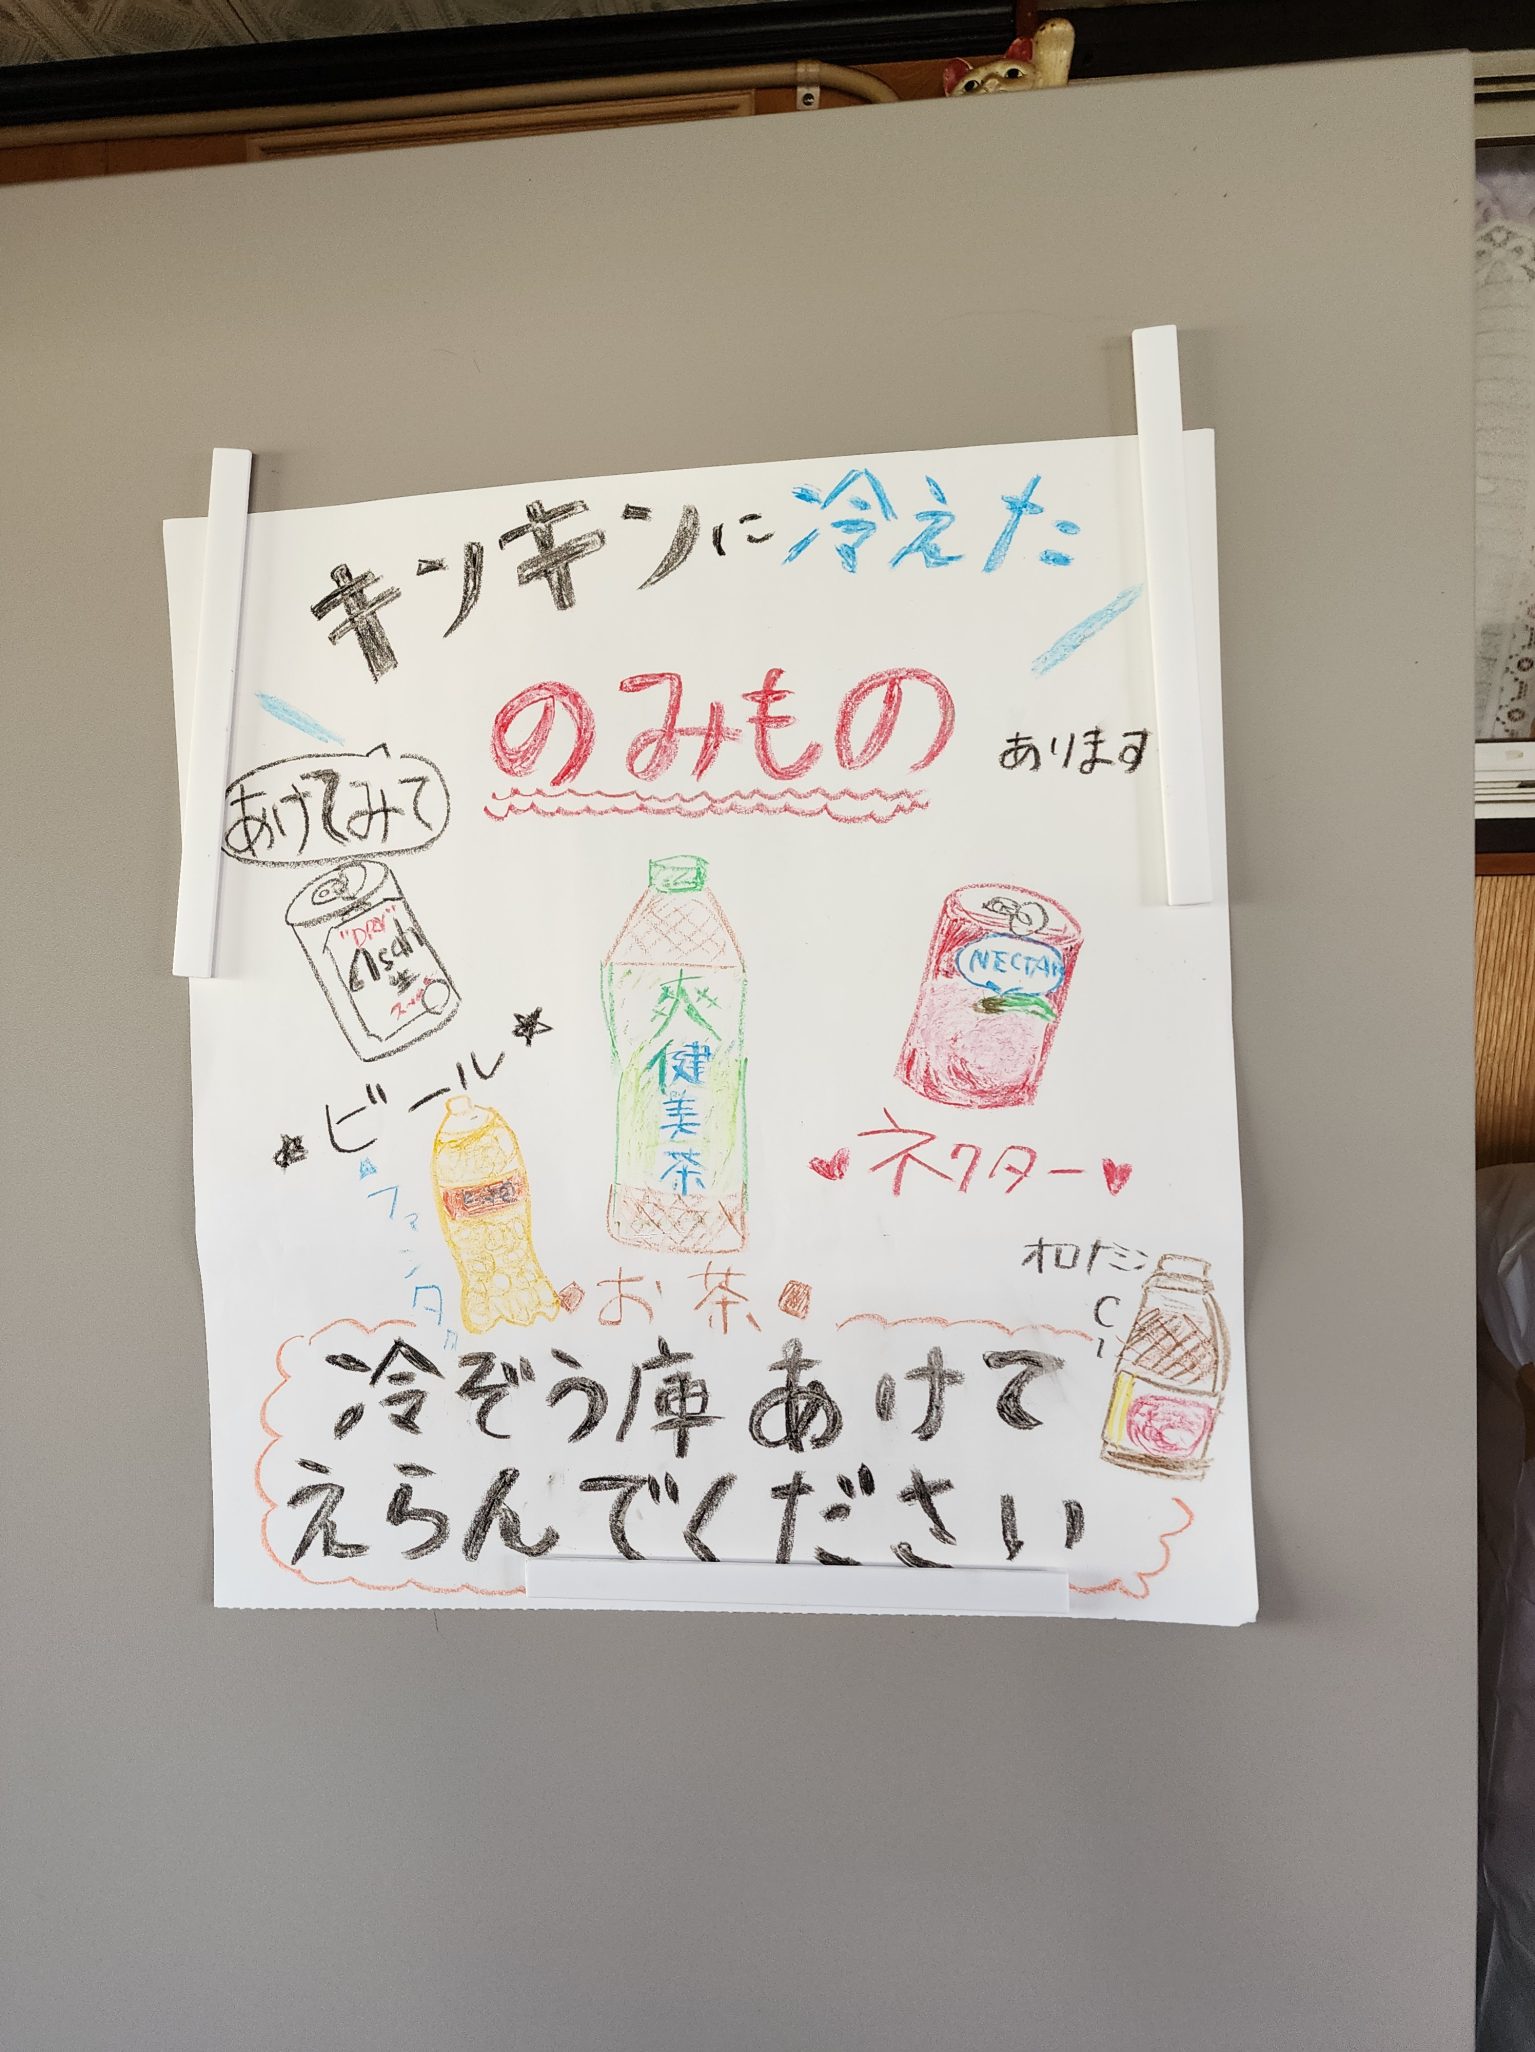 キンキンに冷えた
のみもの
あります
あけてみて
"DRY"
生
爽健美茶
NECTAR
ビール
ネクター
ファンタ
お茶
オロナミン
C
冷ぞう庫あけて
えらんでください